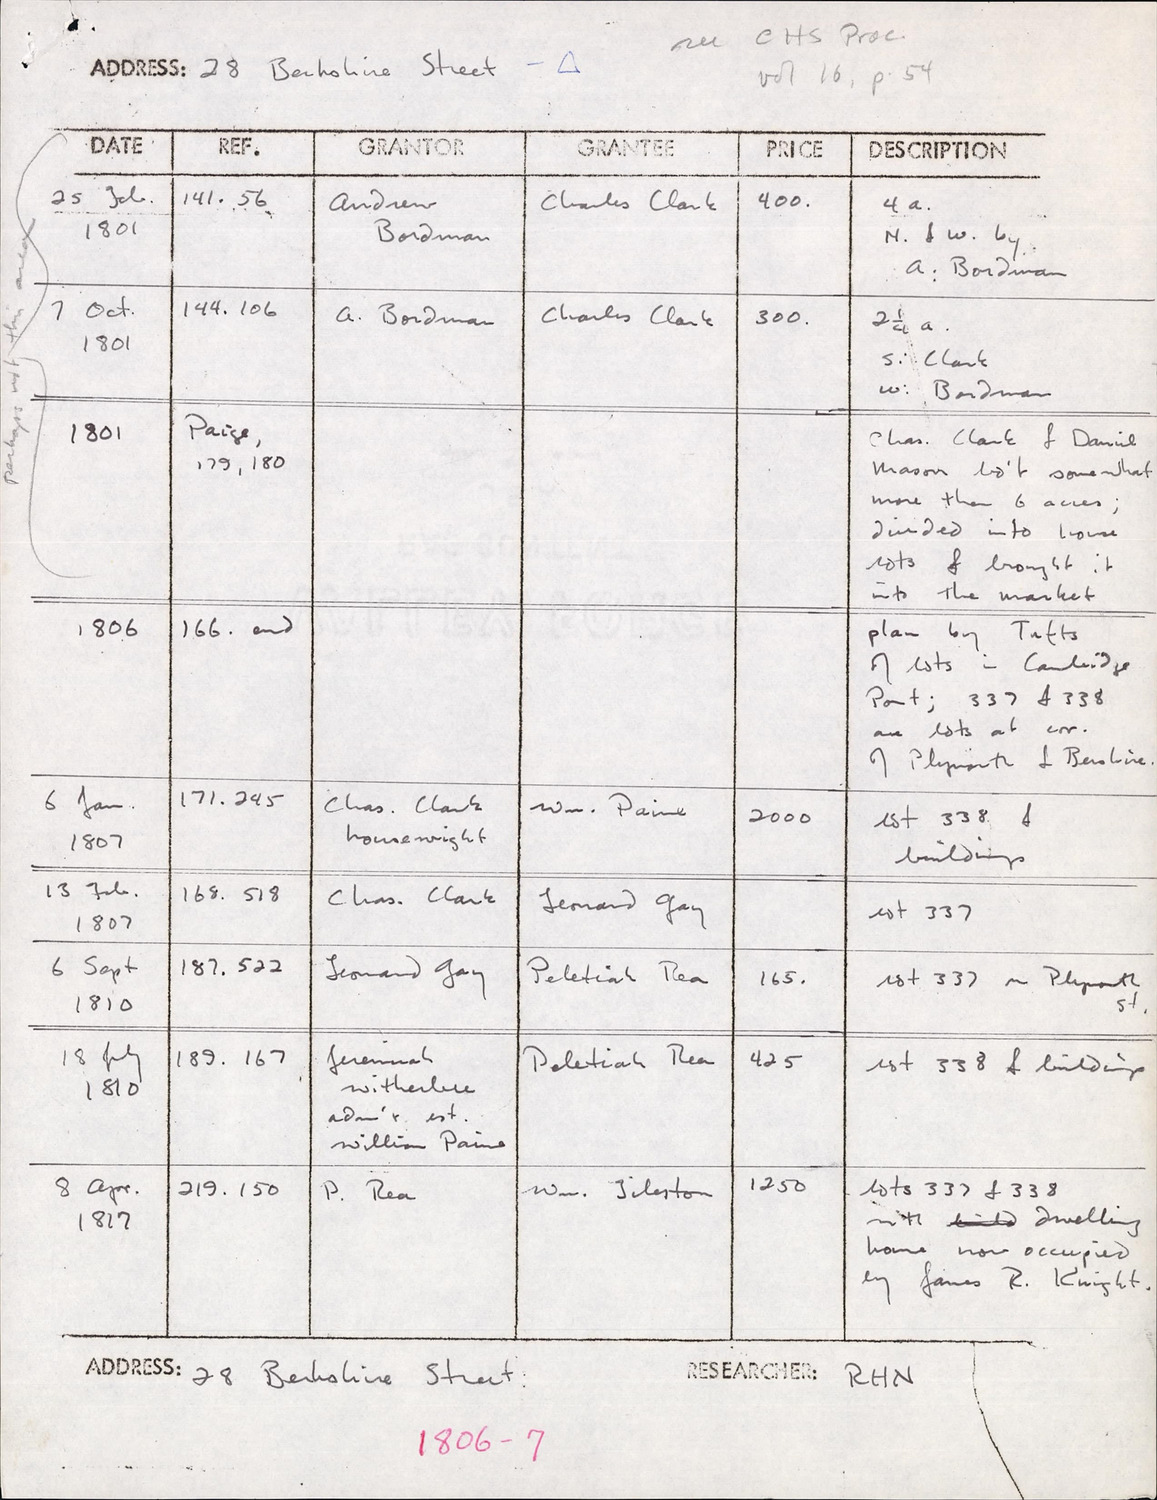 see CHS Proc.
vol 16, p. 54
ADDRESS: 28 Berkshire Street - Δ
DATE REF. GRANTOR GRANTEE PRICE DESCRIPTION
perhaps not this area
25 Feb. 1801
141. 56
Andrew
Bordman
Charles Clark
400.
4 a.
N. & W. by
A. Bordman
7 Oct.
1801
144. 106
A. Bordman
Charles Clark
300.
2¼ a.
S: Clark
W: Bordman
1801
Paige,
179, 180
Chas. Clark & Daniel
Mason bo't somewhat
more than 6 acres;
divided into house
lots & brought it
into the market
1806
166. end
plan by Tufts
of lots in Cambridge
Port; 337 & 338
are lots at cor.
of Plymouth & Berkshire.
6 Jan.
1807
171. 245
Chas. Clark
housewright
Wm. Paine
2000
lot 338 &
buildings
13 Feb.
1807
168. 518
Chas. Clark
Leonard Gay
lot 337
6 Sept
1810
187. 522
Leonard Gay
Peletiah Rea
165.
lot 337 on Plymouth
st.
18 July
1810
189. 167
Jeremiah
Witherbee
adm'r est.
William Paine
Peletiah Rea
425
lot 338 & buildings
8 Apr.
1817
219. 150
P. Rea
Wm. Tileston
1250
lots 337 & 338
with dwelling
house now occupied
by James R. Knight.
ADDRESS: 28 Berkshire Street.
RESEARCHER: RHN
1806-7